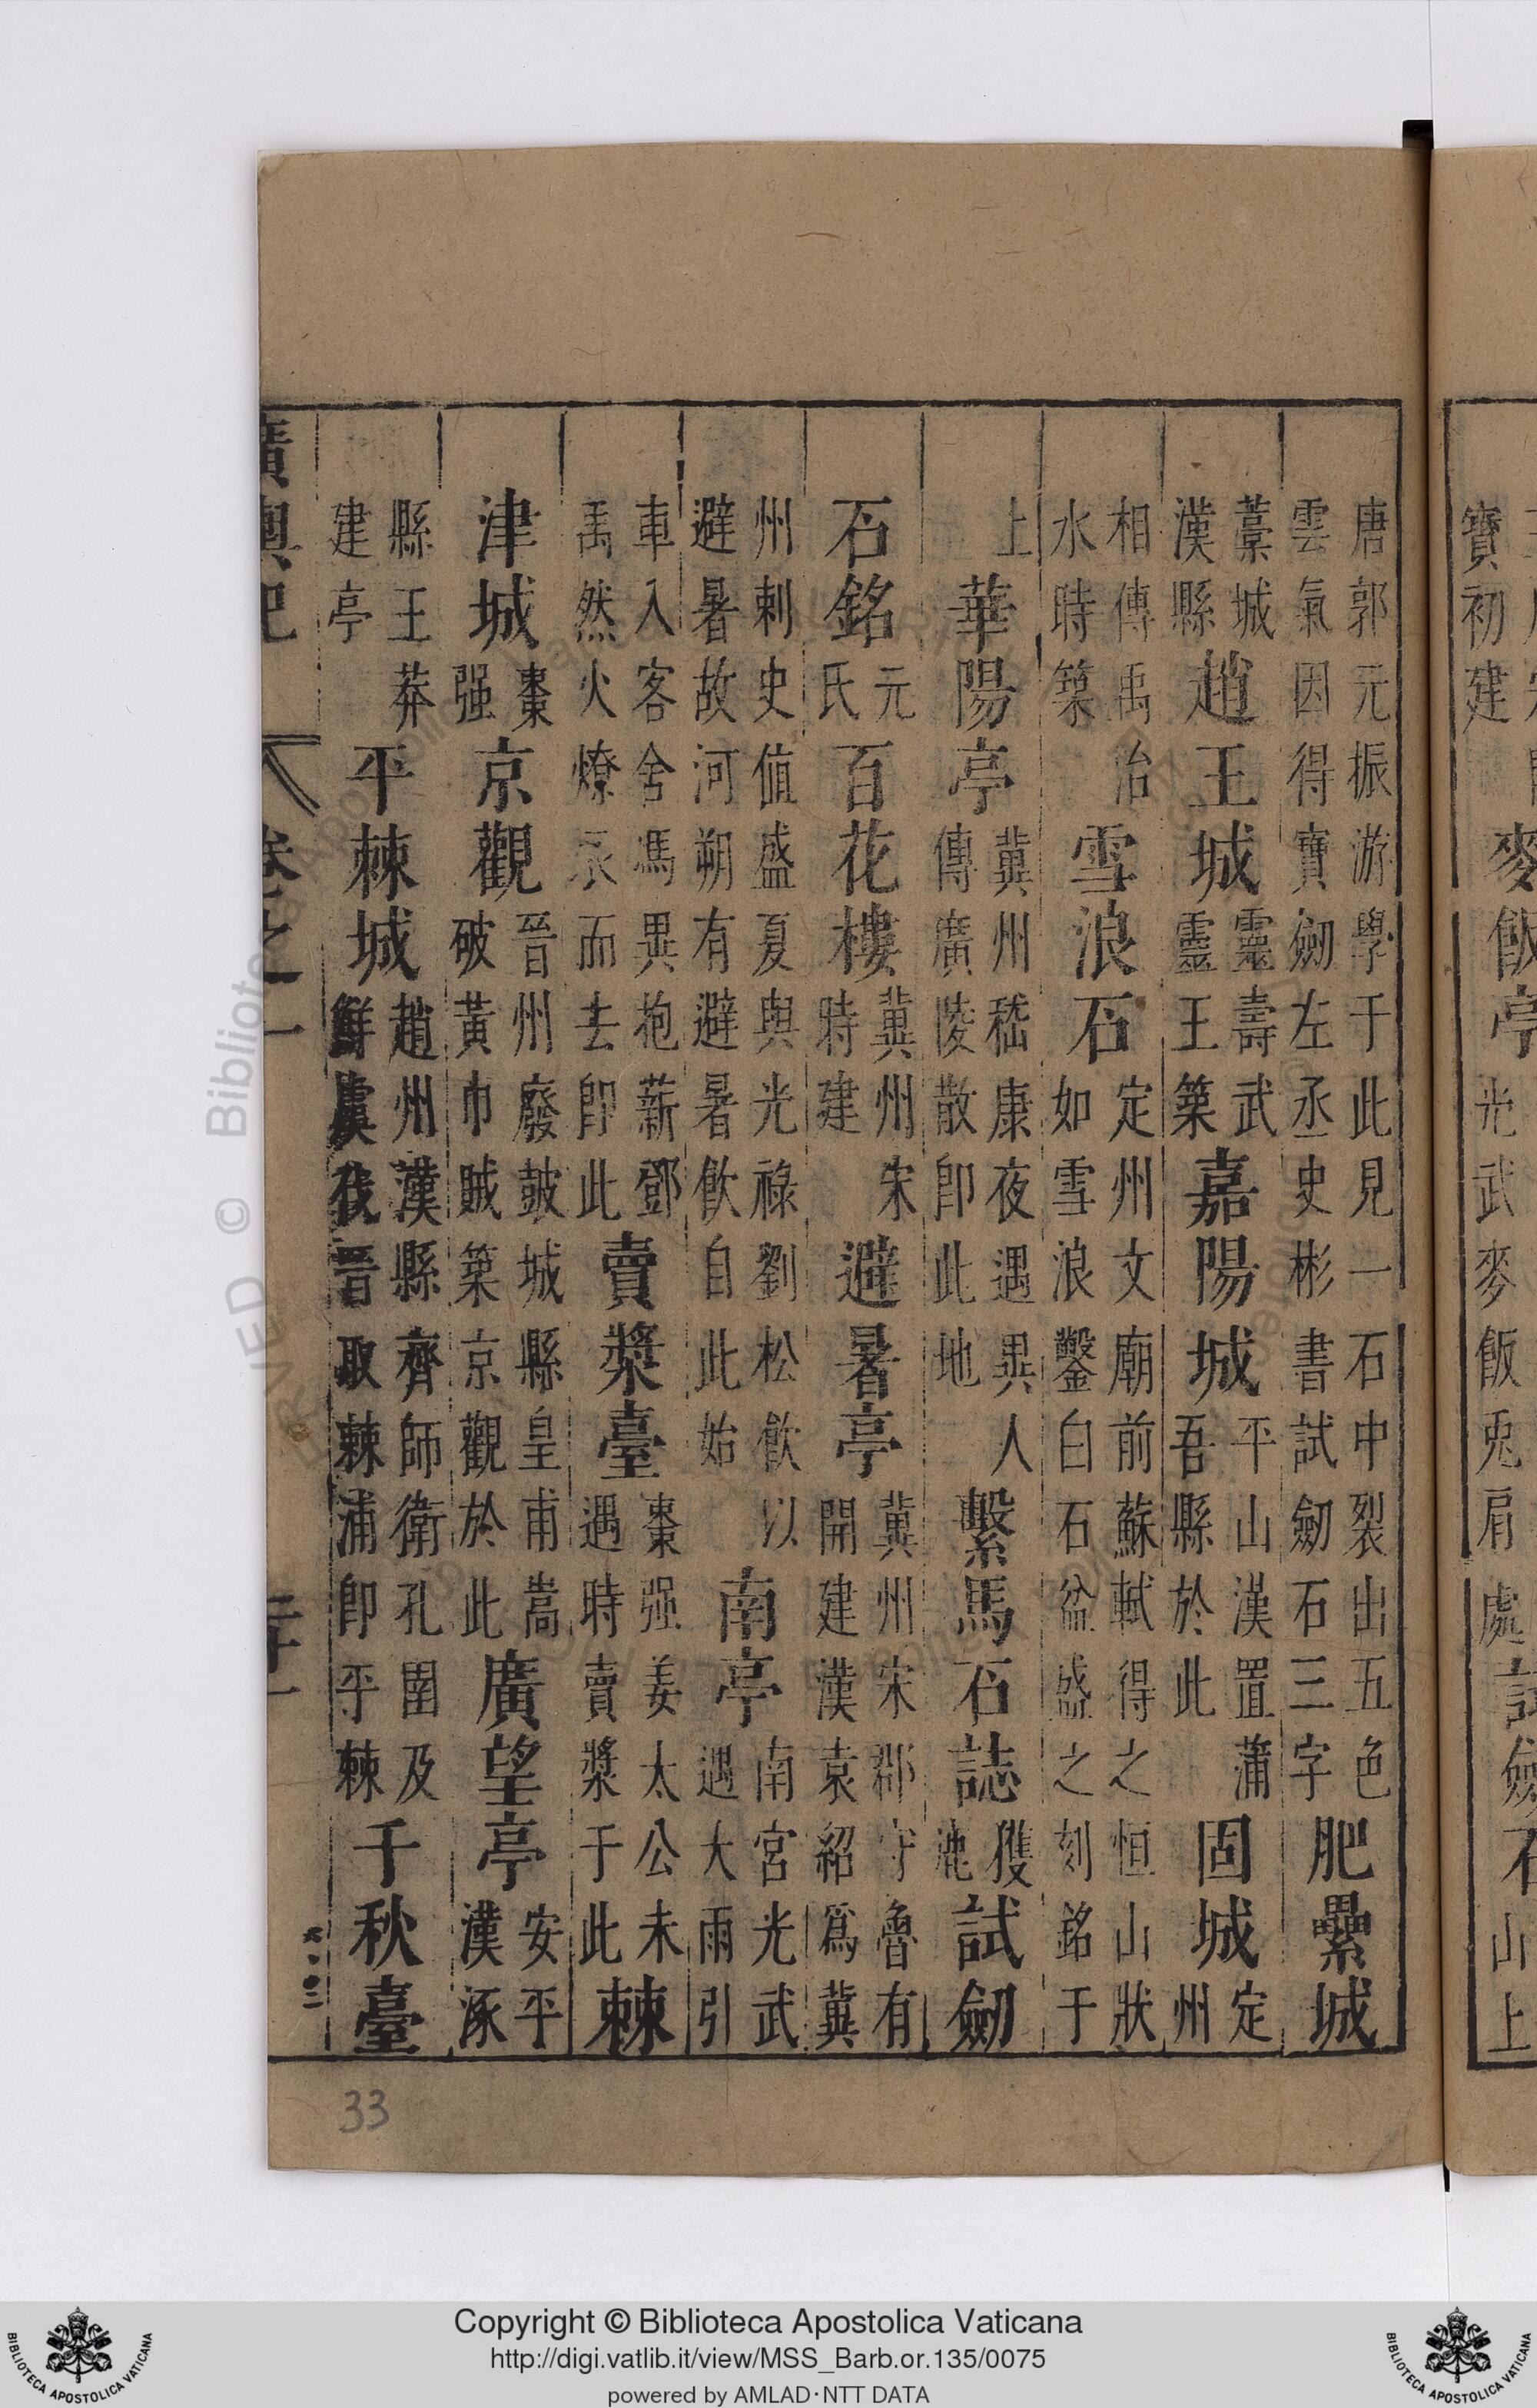 寶初建麥飯亭光武麥飯兎肩處試劒石山上
唐郭元振游學于此見一石中裂出五色雲氣因得寶劒左丞史彬書試劒石三字肥纍城
藁城漢縣趙王城靈壽武靈王築嘉陽城平山漢置蒲吾縣於此固城定州
相傳禹治水時築雪浪石定州文廟前蘇軾得之恒山狀如雪浪鑿白石盆盛之刻銘于
上華陽亭冀州嵇康夜遇異人傳廣陵散卽此地繫馬石誌獲鹿試劒
石銘元氏百花樓冀州宋時建避暑亭冀州宋郡守魯有開建漢袁紹爲冀
州刺史值盛夏與光祿劉松飲以避暑故河朔有避暑飲自此始南亭南宮光武遇大雨引
車入客舍馮異抱薪鄧禹然火燎衣而去卽此賣漿臺棗强姜太公未遇時賣漿于此棘
津城棗强京觀晉州廢皷城縣皇甫嵩破黃巾賊築京觀於此廣望亭安平漢涿
縣王莽建亭平棘城趙州漢縣齊師衛孔圉及鮮虞伐晉取棘浦卽平棘千秋臺
廣輿記 卷之一 二十一
33
RVED © Biblioteca Apostolica Vaticana
Copyright © Biblioteca Apostolica Vaticana
http://digi.vatlib.it/view/MSS_Barb.or.135/0075
powered by AMLAD·NTT DATA
BIBLIOTECA APOSTOLICA VATICANA
BIBLIOTECA APOSTOLICA VATICANA